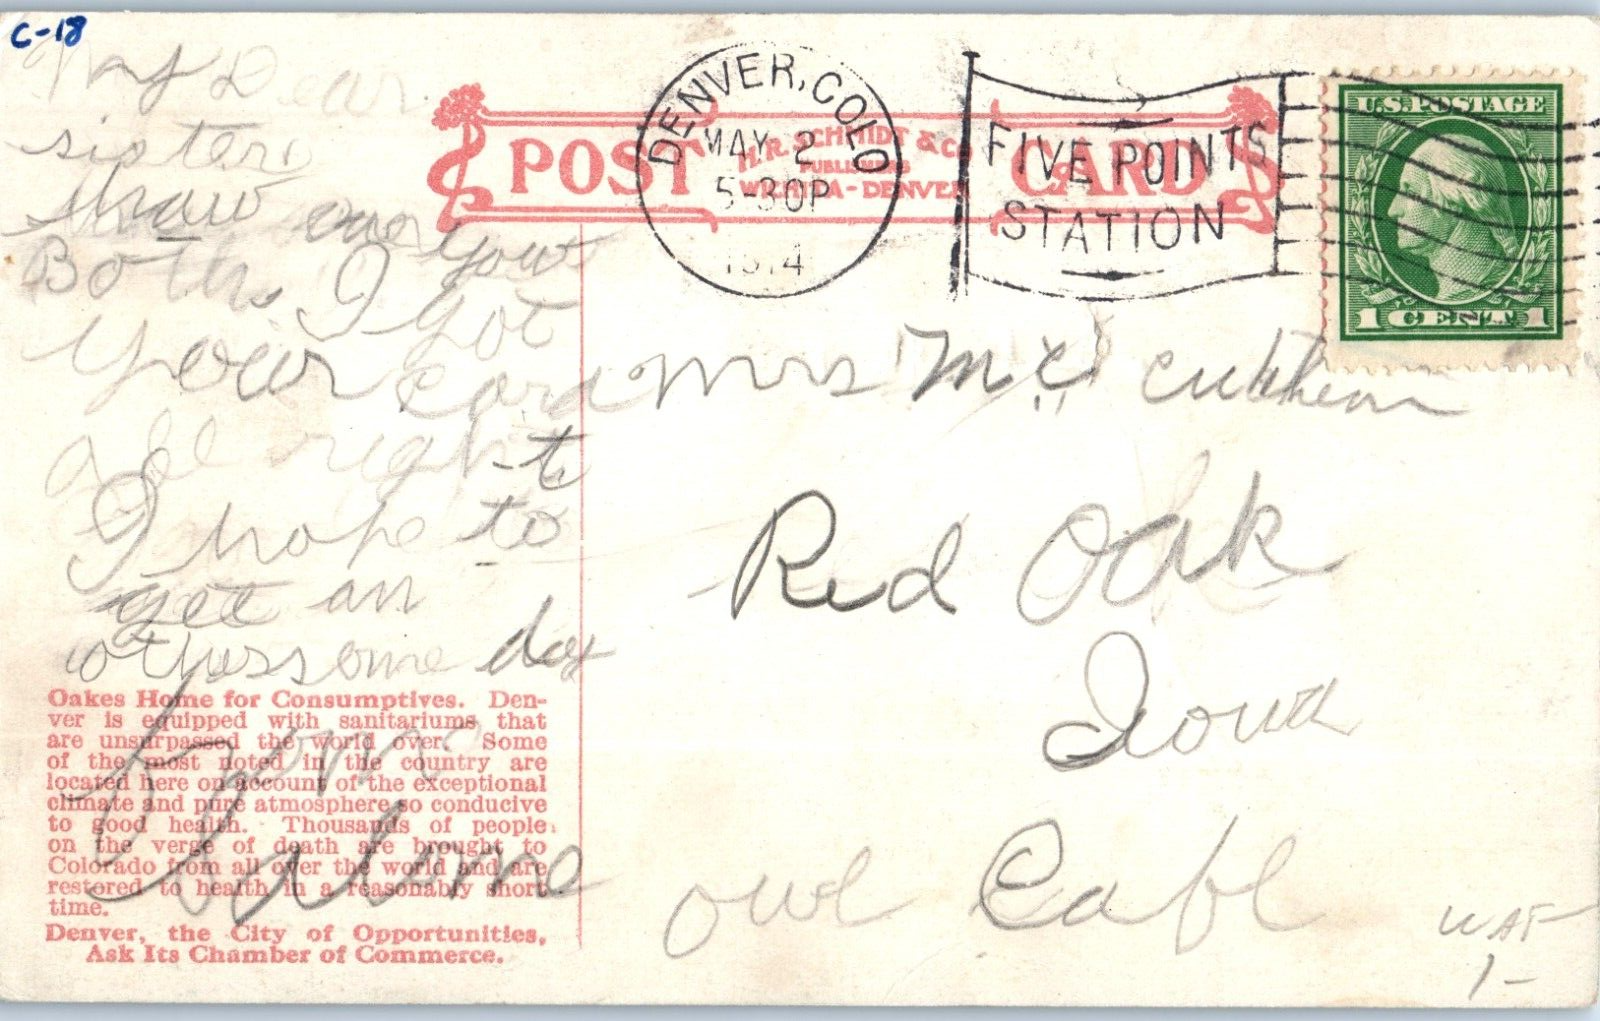 C-18
My Dear
sister
how are you
Both. I got
your card
all right
I hope to
get an
other some day
from
Oakes Home for Consumptives. Den-
ver is equipped with sanitariums that
are unsurpassed the world over. Some
of the most noted in the country are
located here on account of the exceptional
climate and pure atmosphere so conducive
to good health. Thousands of people
on the verge of death are brought to
Colorado from all over the world and are
restored to health in a reasonably short
time.
Denver, the City of Opportunities,
Ask Its Chamber of Commerce.
POST CARD
H.R. SCHMIDT & CO
PUBLISHERS
WICHITA-DENVER
DENVER, COLO
MAY 2
5-30P
1914
FIVE POINTS
STATION
U.S. POSTAGE
1 CENT 1
Mrs Mc
Red Oak
Iowa
owl Cafe
1-